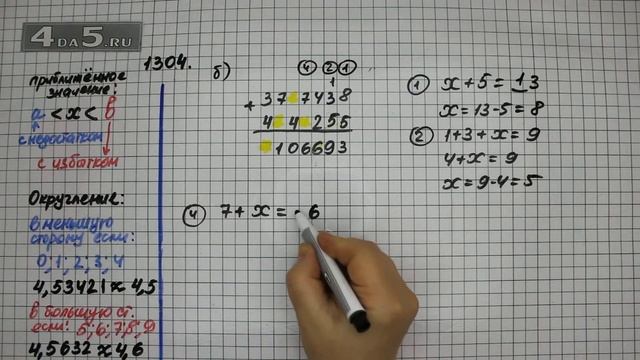 4DA5.RU
1304.
приближённое
значение:
а < х < в
с недостатком
с избытком
Округление:
в меньшую
сторону если:
0; 1; 2; 3; 4
4,53421 ≈ 4,5
в большую ст.
если: 5; 6; 7; 8; 9
4,5632 ≈ 4,6
б)
④ ② ①
1
+ 37 7438
4 4 255
1106693
① x + 5 = 13
x = 13 - 5 = 8
② 1 + 3 + x = 9
4 + x = 9
x = 9 - 4 = 5
④ 7 + x = 6